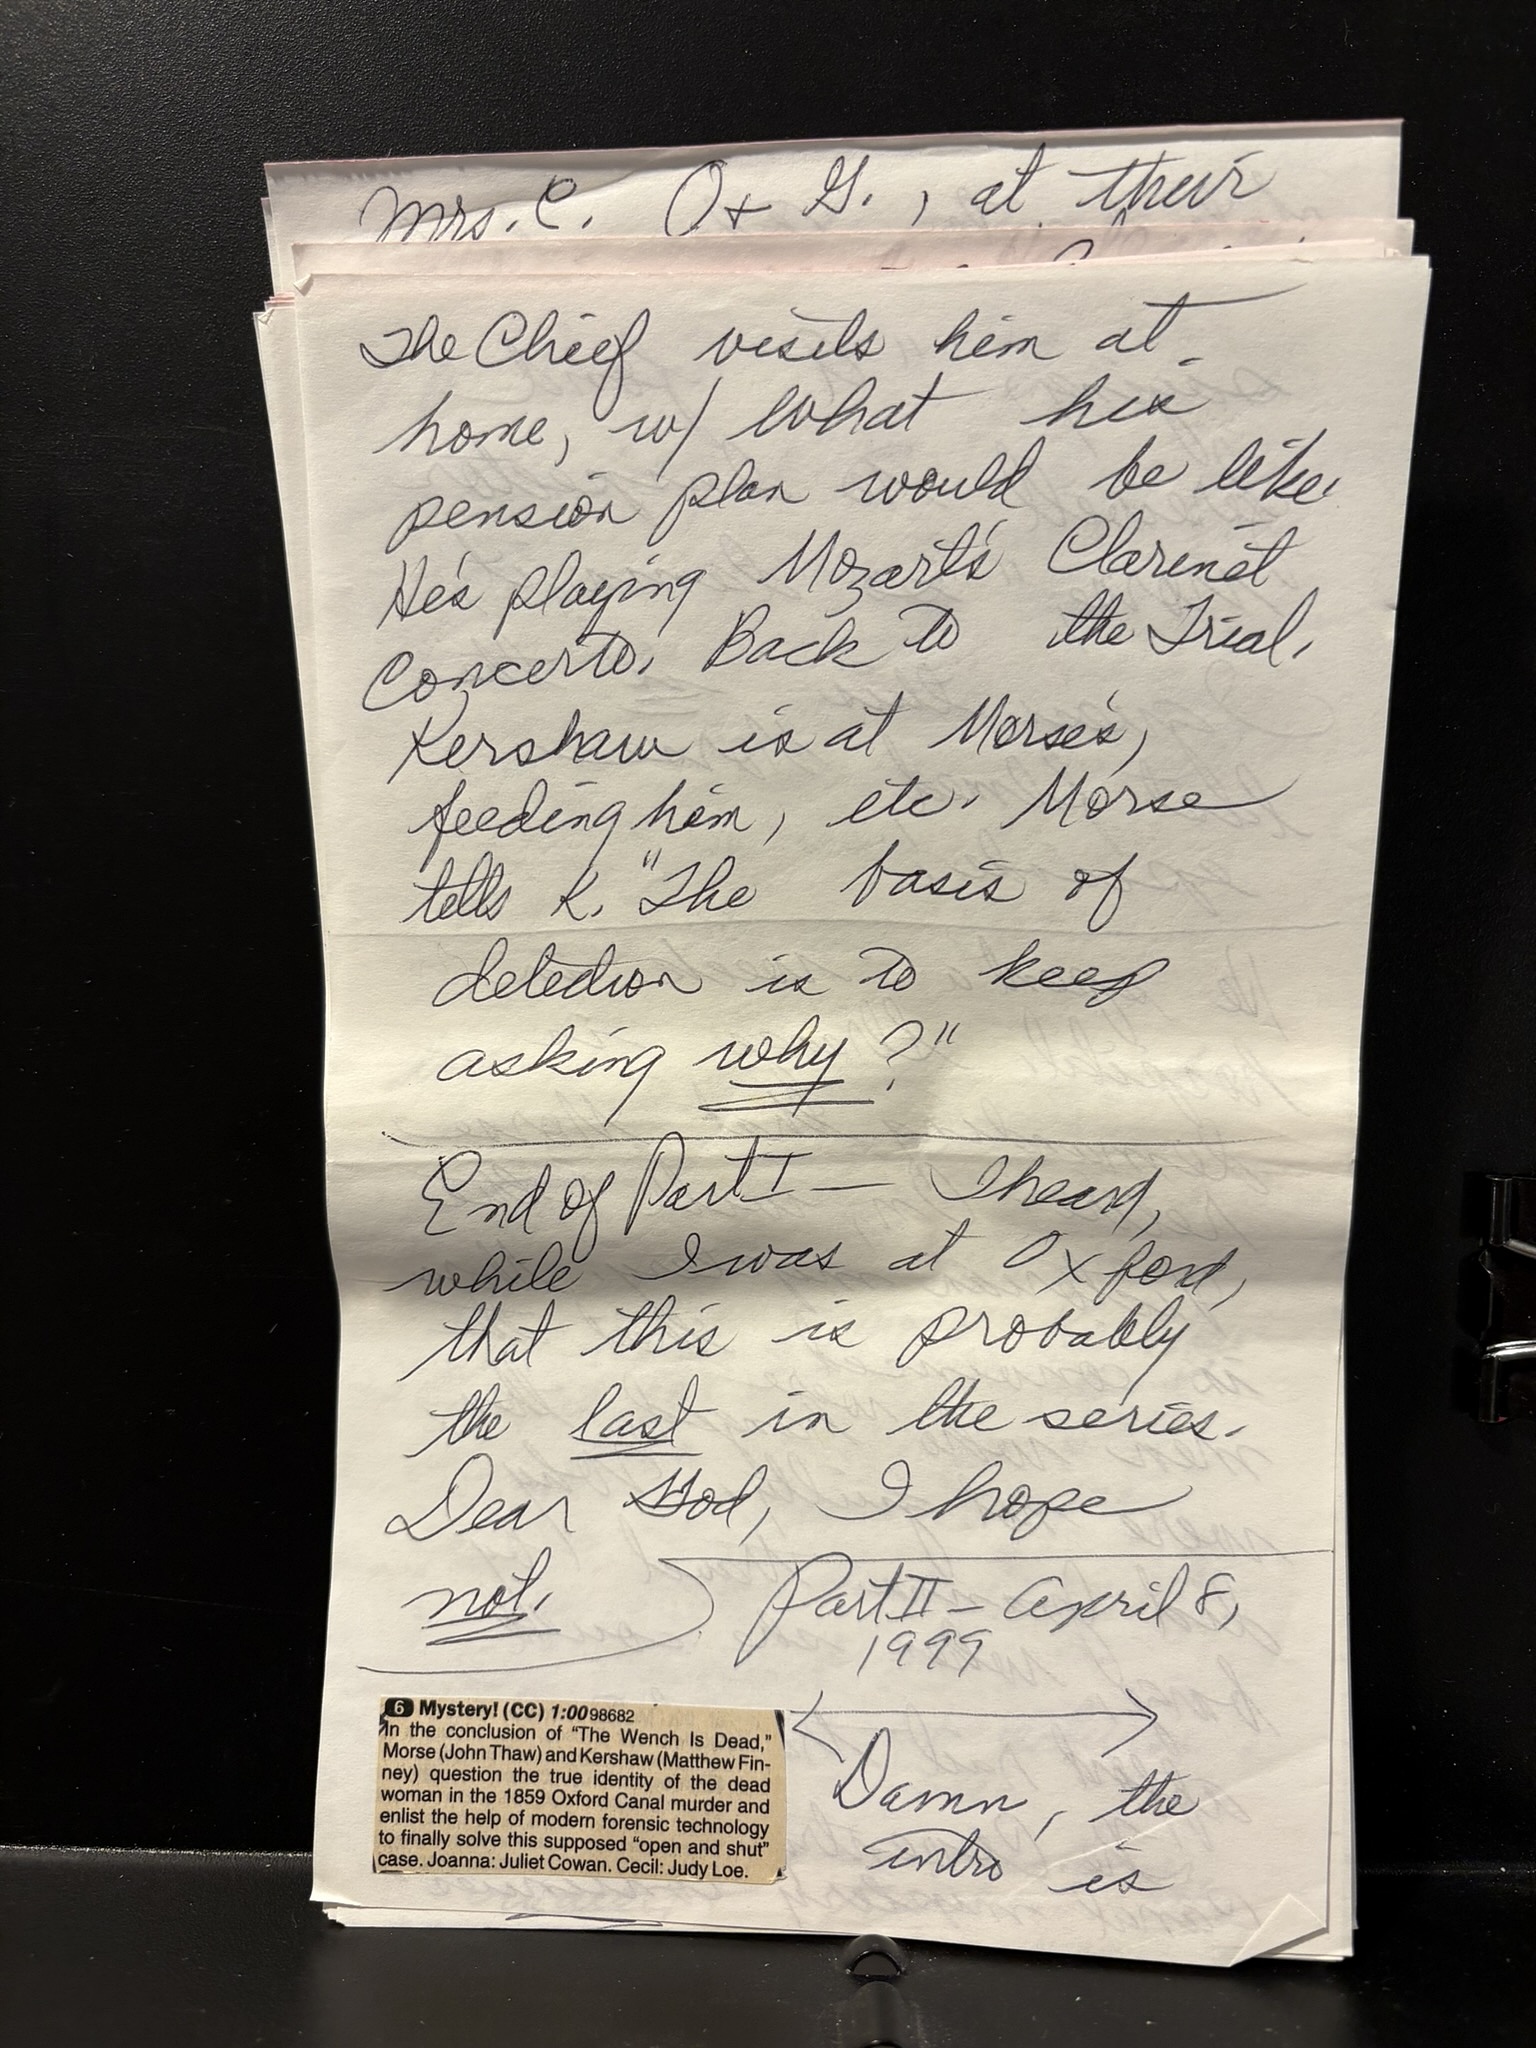 Mrs. C. O+ G., at their
The Chief visits him at
home, w/ what his
pension plan would be like.
He's playing Mozart's Clarinet
Concerto. Back to the Trial.
Kershaw is at Morse's,
feeding him, etc. Morse
tells K. "The basis of
detection is to keep
asking why?"
End of Part I — I heard,
while I was at Oxford,
that this is probably
the last in the series.
Dear God, I hope
not.
Part II - April 8,
1999
6 Mystery! (CC) 1:00 98682
In the conclusion of "The Wench Is Dead,"
Morse (John Thaw) and Kershaw (Matthew Fin-
ney) question the true identity of the dead
woman in the 1859 Oxford Canal murder and
enlist the help of modern forensic technology
to finally solve this supposed "open and shut"
case. Joanna: Juliet Cowan. Cecil: Judy Loe.
Damn, the
intro is